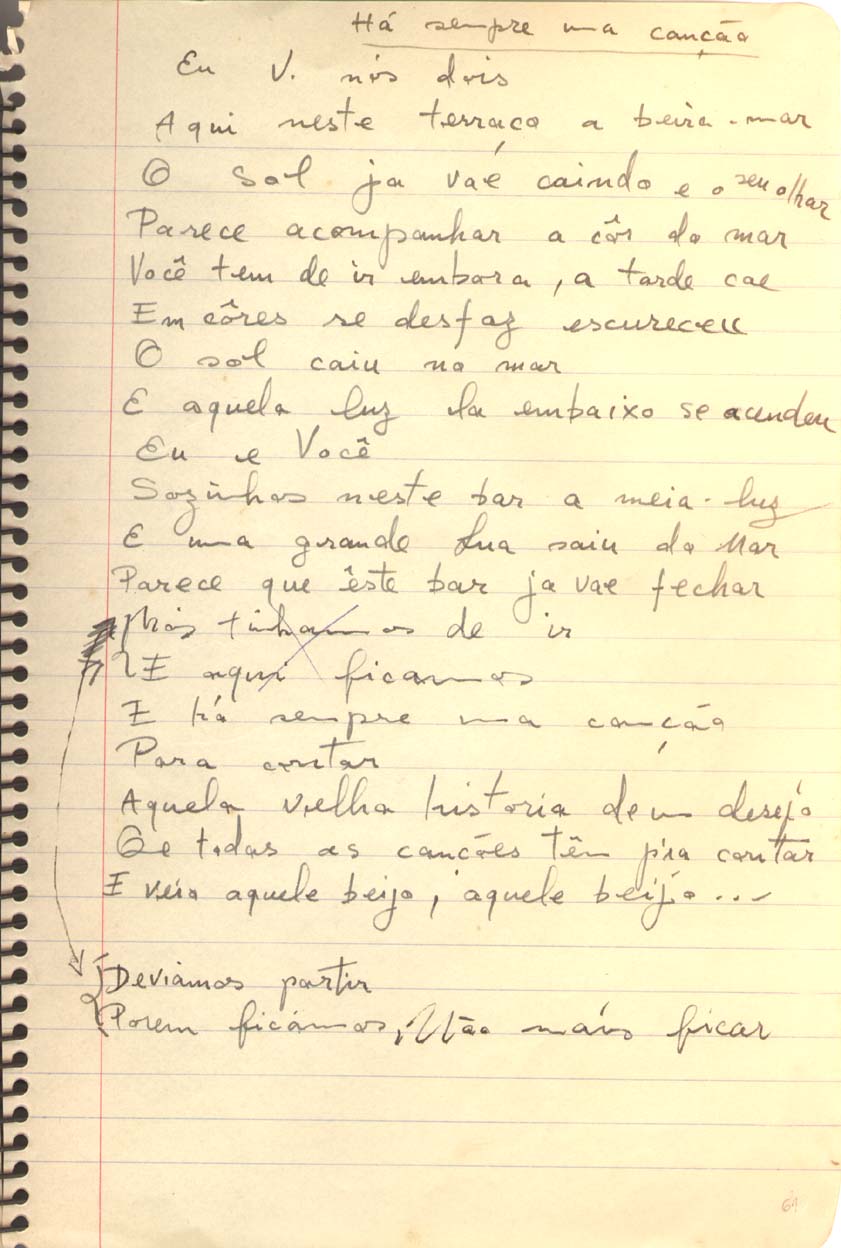 Há sempre uma canção
Eu V. nós dois
Aqui neste terraço a beira-mar
O sol ja vae caindo e o seu olhar
Parece acompanhar a côr do mar
Você tem de ir embora, a tarde cae
Em côres se desfaz escureceu
O sol caiu no mar
E aquela luz la embaixo se acendeu
Eu e Você
Sozinhos neste bar a meia-luz
E uma grande Lua saiu do Mar
Parece que êste bar ja vae fechar
Nós tinhamos de ir
E aqui ficamos
E há sempre uma canção
Para contar
Aquela velha historia de um desejo
Qe todas as canções têm pra contar
E veio aquele beijo, aquele beijo...
Deviamos partir
Porem ficámos, Não mais ficar
61